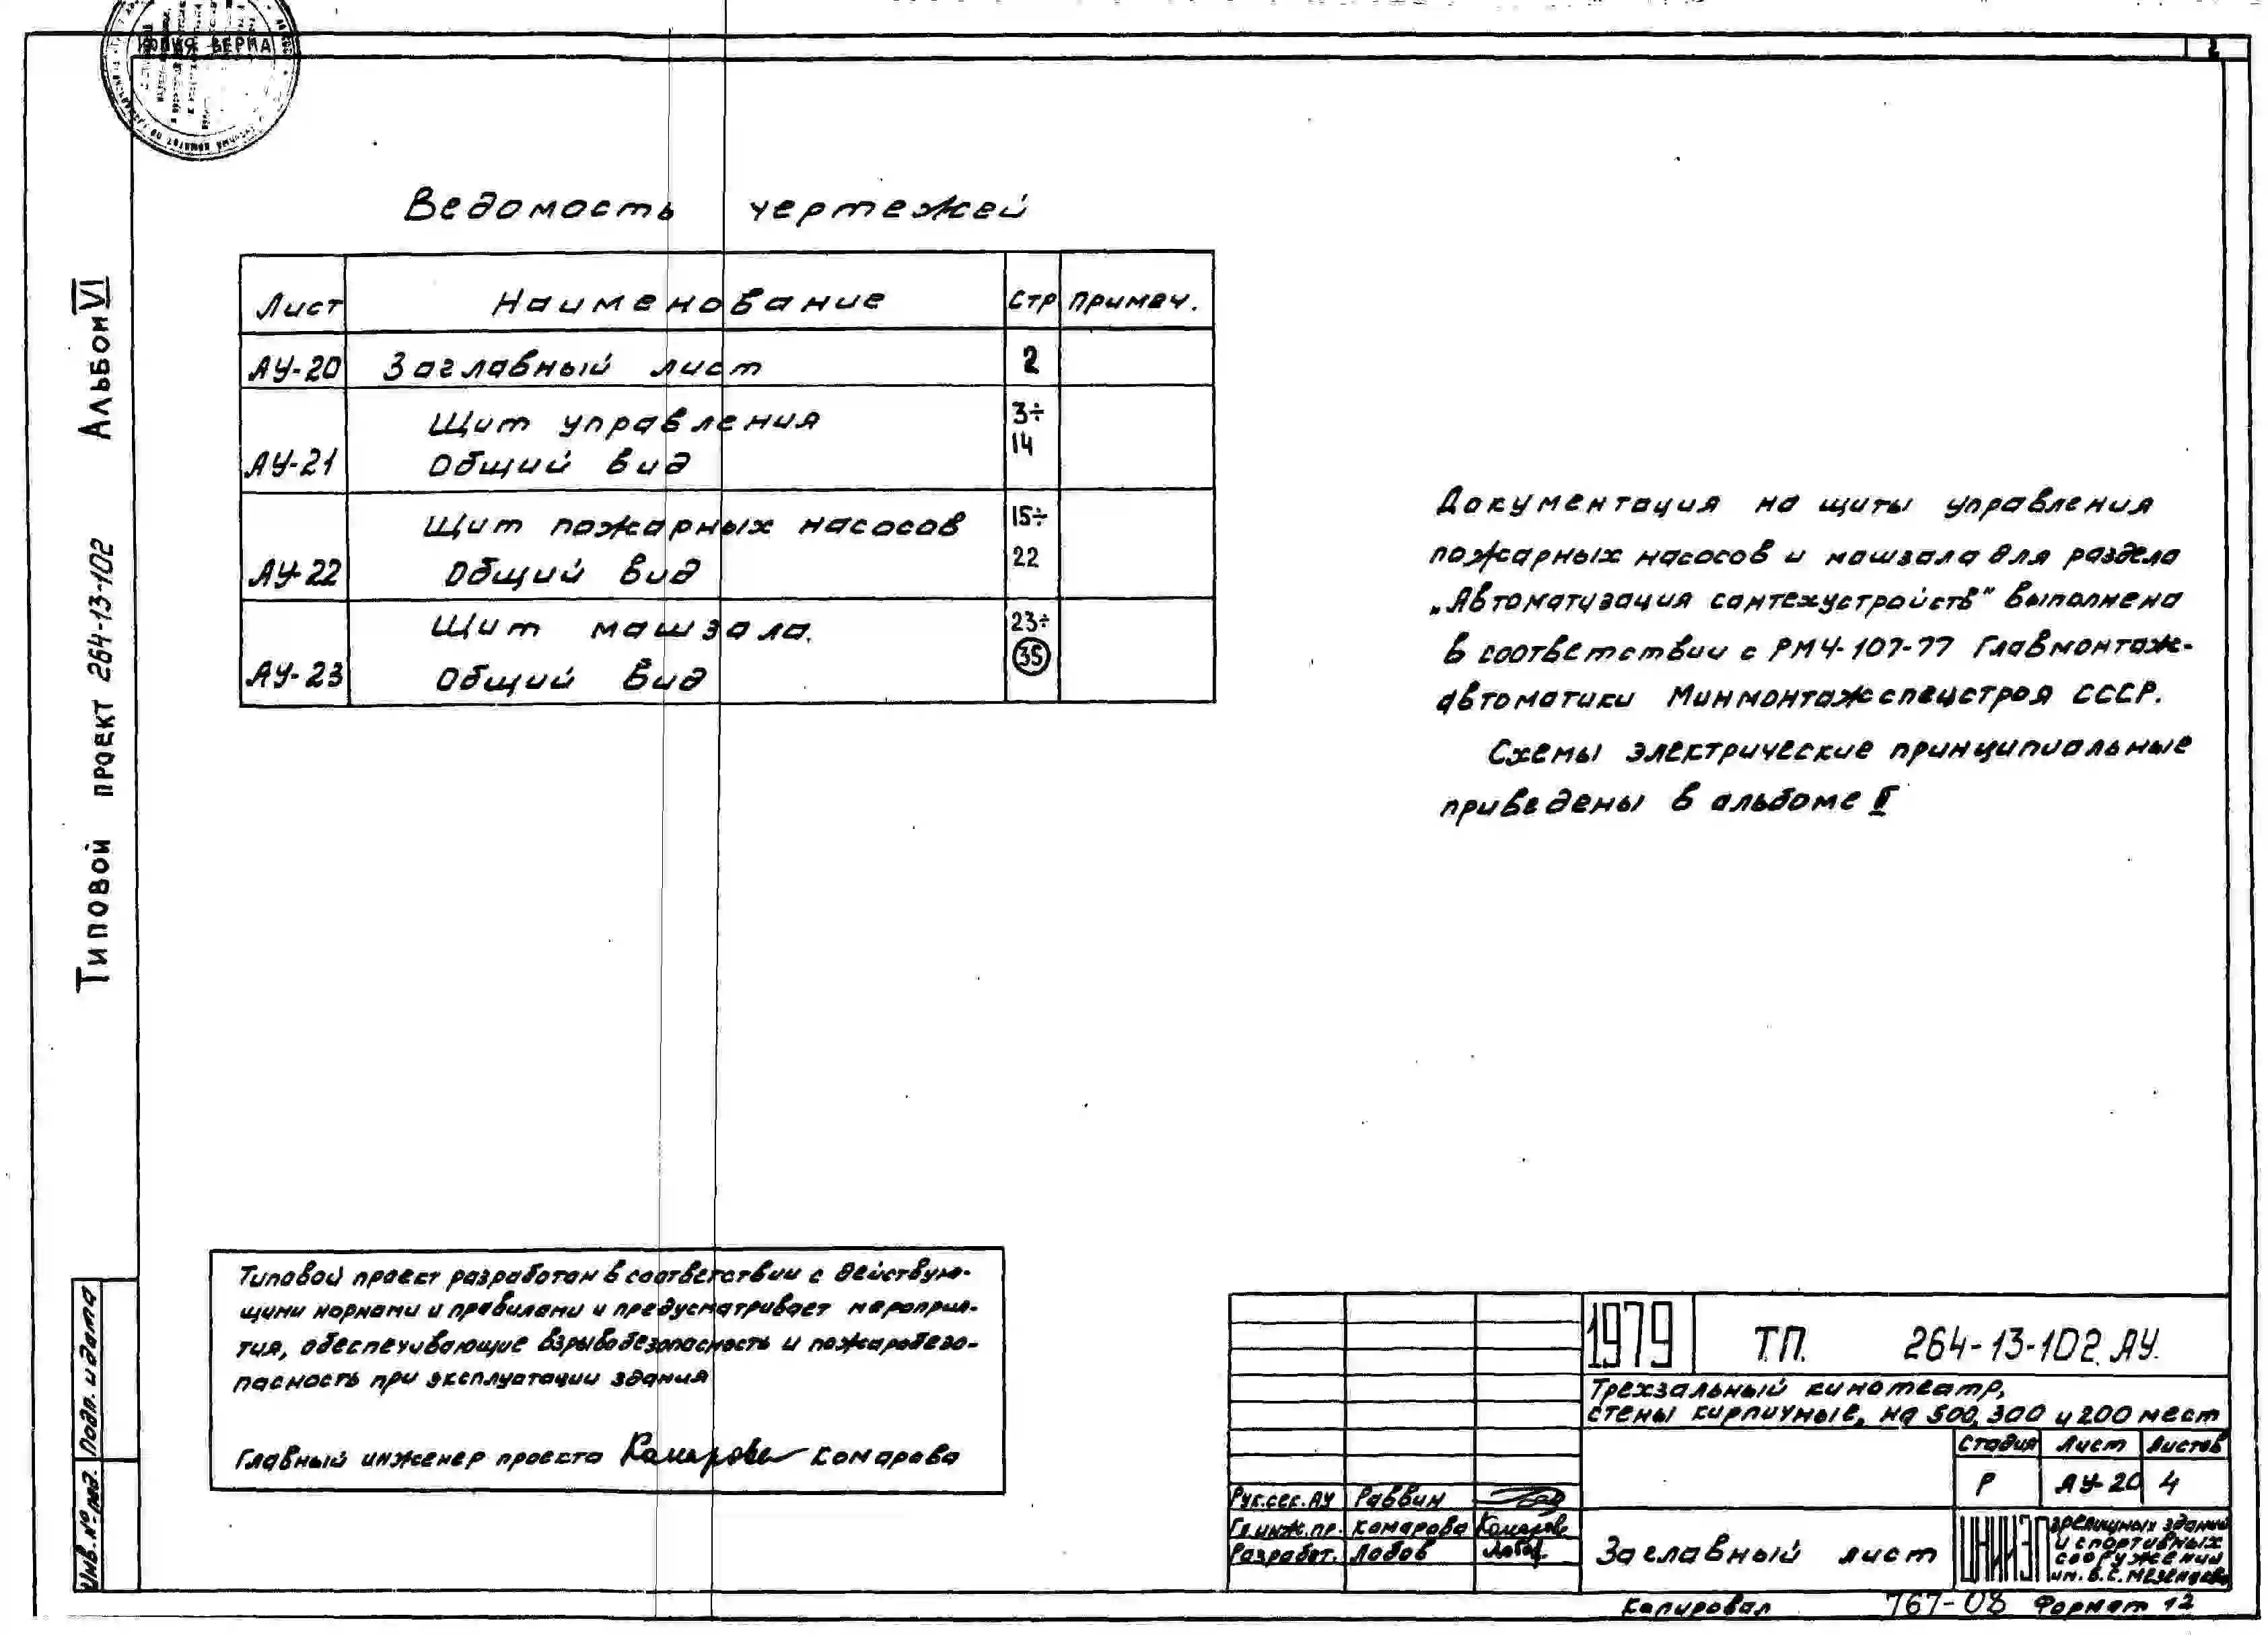 КОПИЯ ВЕРНА
2
Ведомость чертежей
Лист Наименование Стр Примеч.
АУ-20 Заглавный лист 2
Щит управления 3÷
14
АУ-21 Общий вид
Щит пожарных насосов 15÷
АУ-22 Общий вид 22
Щит машзала. 23÷
АУ-23 Общий вид 35
Документация на щиты управления
пожарных насосов и машзала для раздела
„Автоматизация сантехустройств" выполнена
в соответствии с РМ4-107-77 Главмонтаж-
автоматики Минмонтажспецстроя СССР.
Схемы электрические принципиальные
приведены в альбоме
Типовой проект 264-13-102 Альбом VI
Инв.№ под. Подп. и дата
Типовой проект разработан в соответствии с действую-
щими нормами и правилами и предусматривает мероприя-
тия, обеспечивающие взрывобезопасность и пожаробезо-
пасность при эксплуатации здания
Главный инженер проекта Комарова Комарова
1979 Т.П. 264-13-102. АУ.
Трехзальный кинотеатр,
стены кирпичные, на 500, 300 и 200 мест
Стадия Лист Листов
Р АУ-20 4
Рук.сек.АУ Раввин
Гл.инж.пр. Комарова Комарова
Разработ. Лобов Лобов
Заглавный лист
ЦНИИЭП зрелищных зданий
и спортивных
сооружений
им. Б.С. Мезенцева
Копировал 767-08 Формат 12